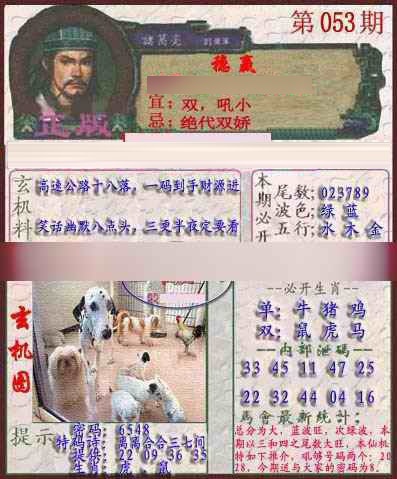 第053期
諸葛亮
德赢
宜：双，吼小
忌：绝代双娇
正版
玄机料
高速公路十八落，一码到手财源进
笑话幽默八点头，三更半夜定要看
本期必开
尾数：023789
波色：绿 蓝
五行：水 木 金
玄机图
必开生肖
单：牛 猪 鸡
双：鼠 虎 马
--内部泄码--
33 45 11 47 25
22 32 44 04 16
馬會最新統計：
总分为大，蓝波旺，次绿波，本
期以三和四之尾数大旺，本仙机
特如下推介，吼够号码两个：20
28，今期送与大家的密码为8．
提示
密码：6548
特码诗：离离合合三七间
提供：22 09 36 35
生肖：虎、鼠